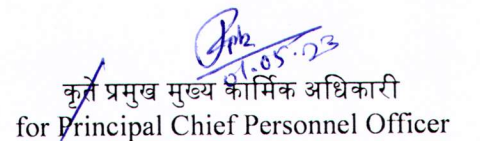 01.05.23
कृते प्रमुख मुख्य कार्मिक अधिकारी
for Principal Chief Personnel Officer